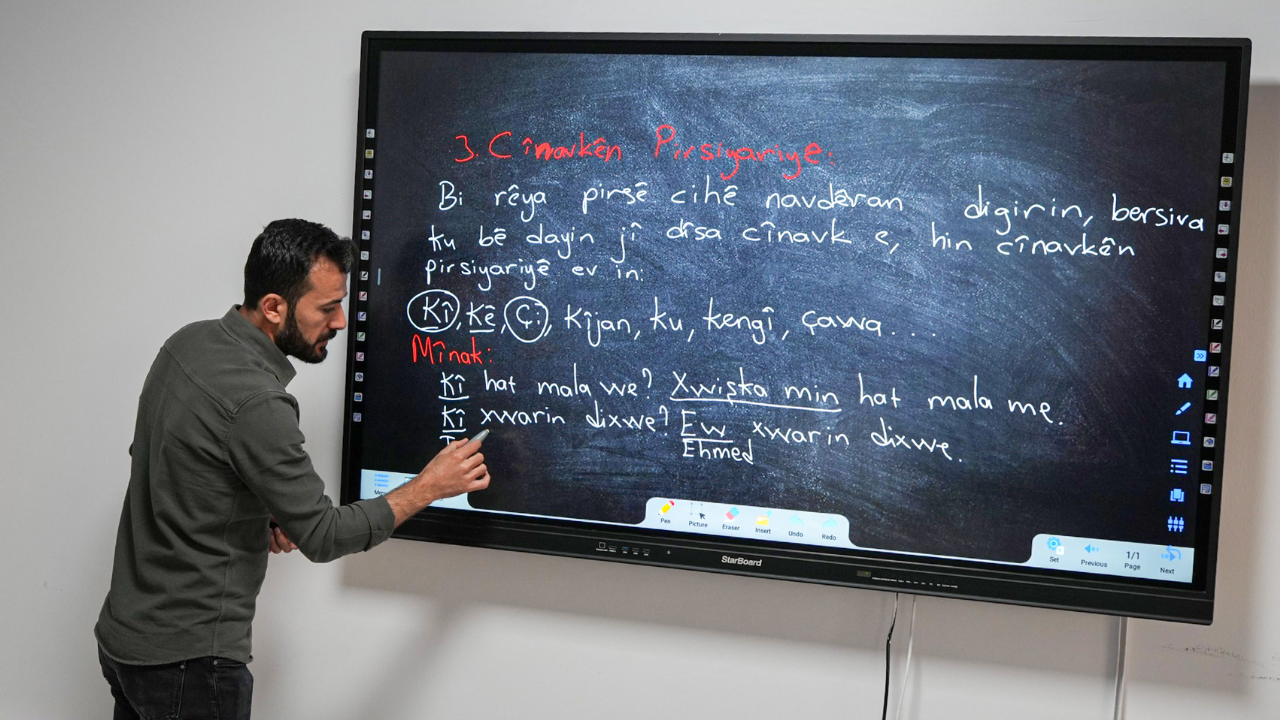 3. Cînavkên Pirsiyariyê.
Bi rêya pirsê cihê navdêran digirin, bersiva
ku bê dayin jî dîsa cînavk e, hin cînavkên
pirsiyariyê ev in:
Kî, Kê, Çi, Kîjan, ku, kengî, çawa....
Mînak:
Kî hat mala we? Xwişka min hat mala me.
Kî xwarin dixwe? Ew xwarin dixwe.
Ehmed
Pen Picture Eraser Insert Undo Redo
Set Previous 1/1 Page Next
StarBoard